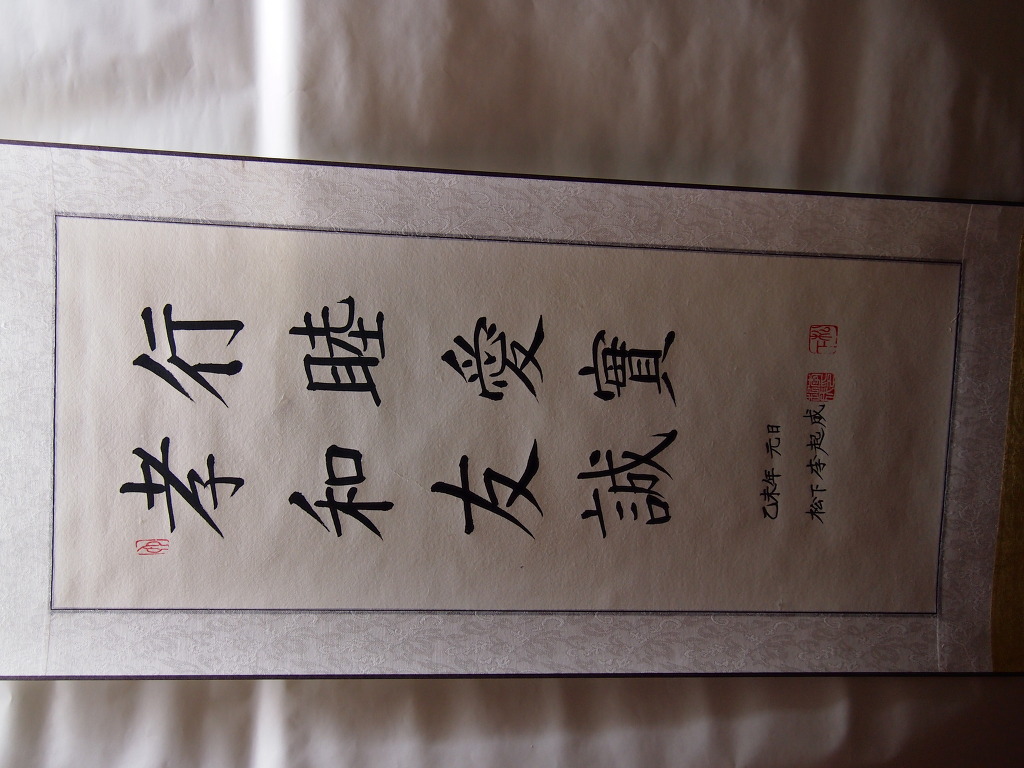 孝行
和睦
友愛
誠實
乙未年 元日
松下 李起成